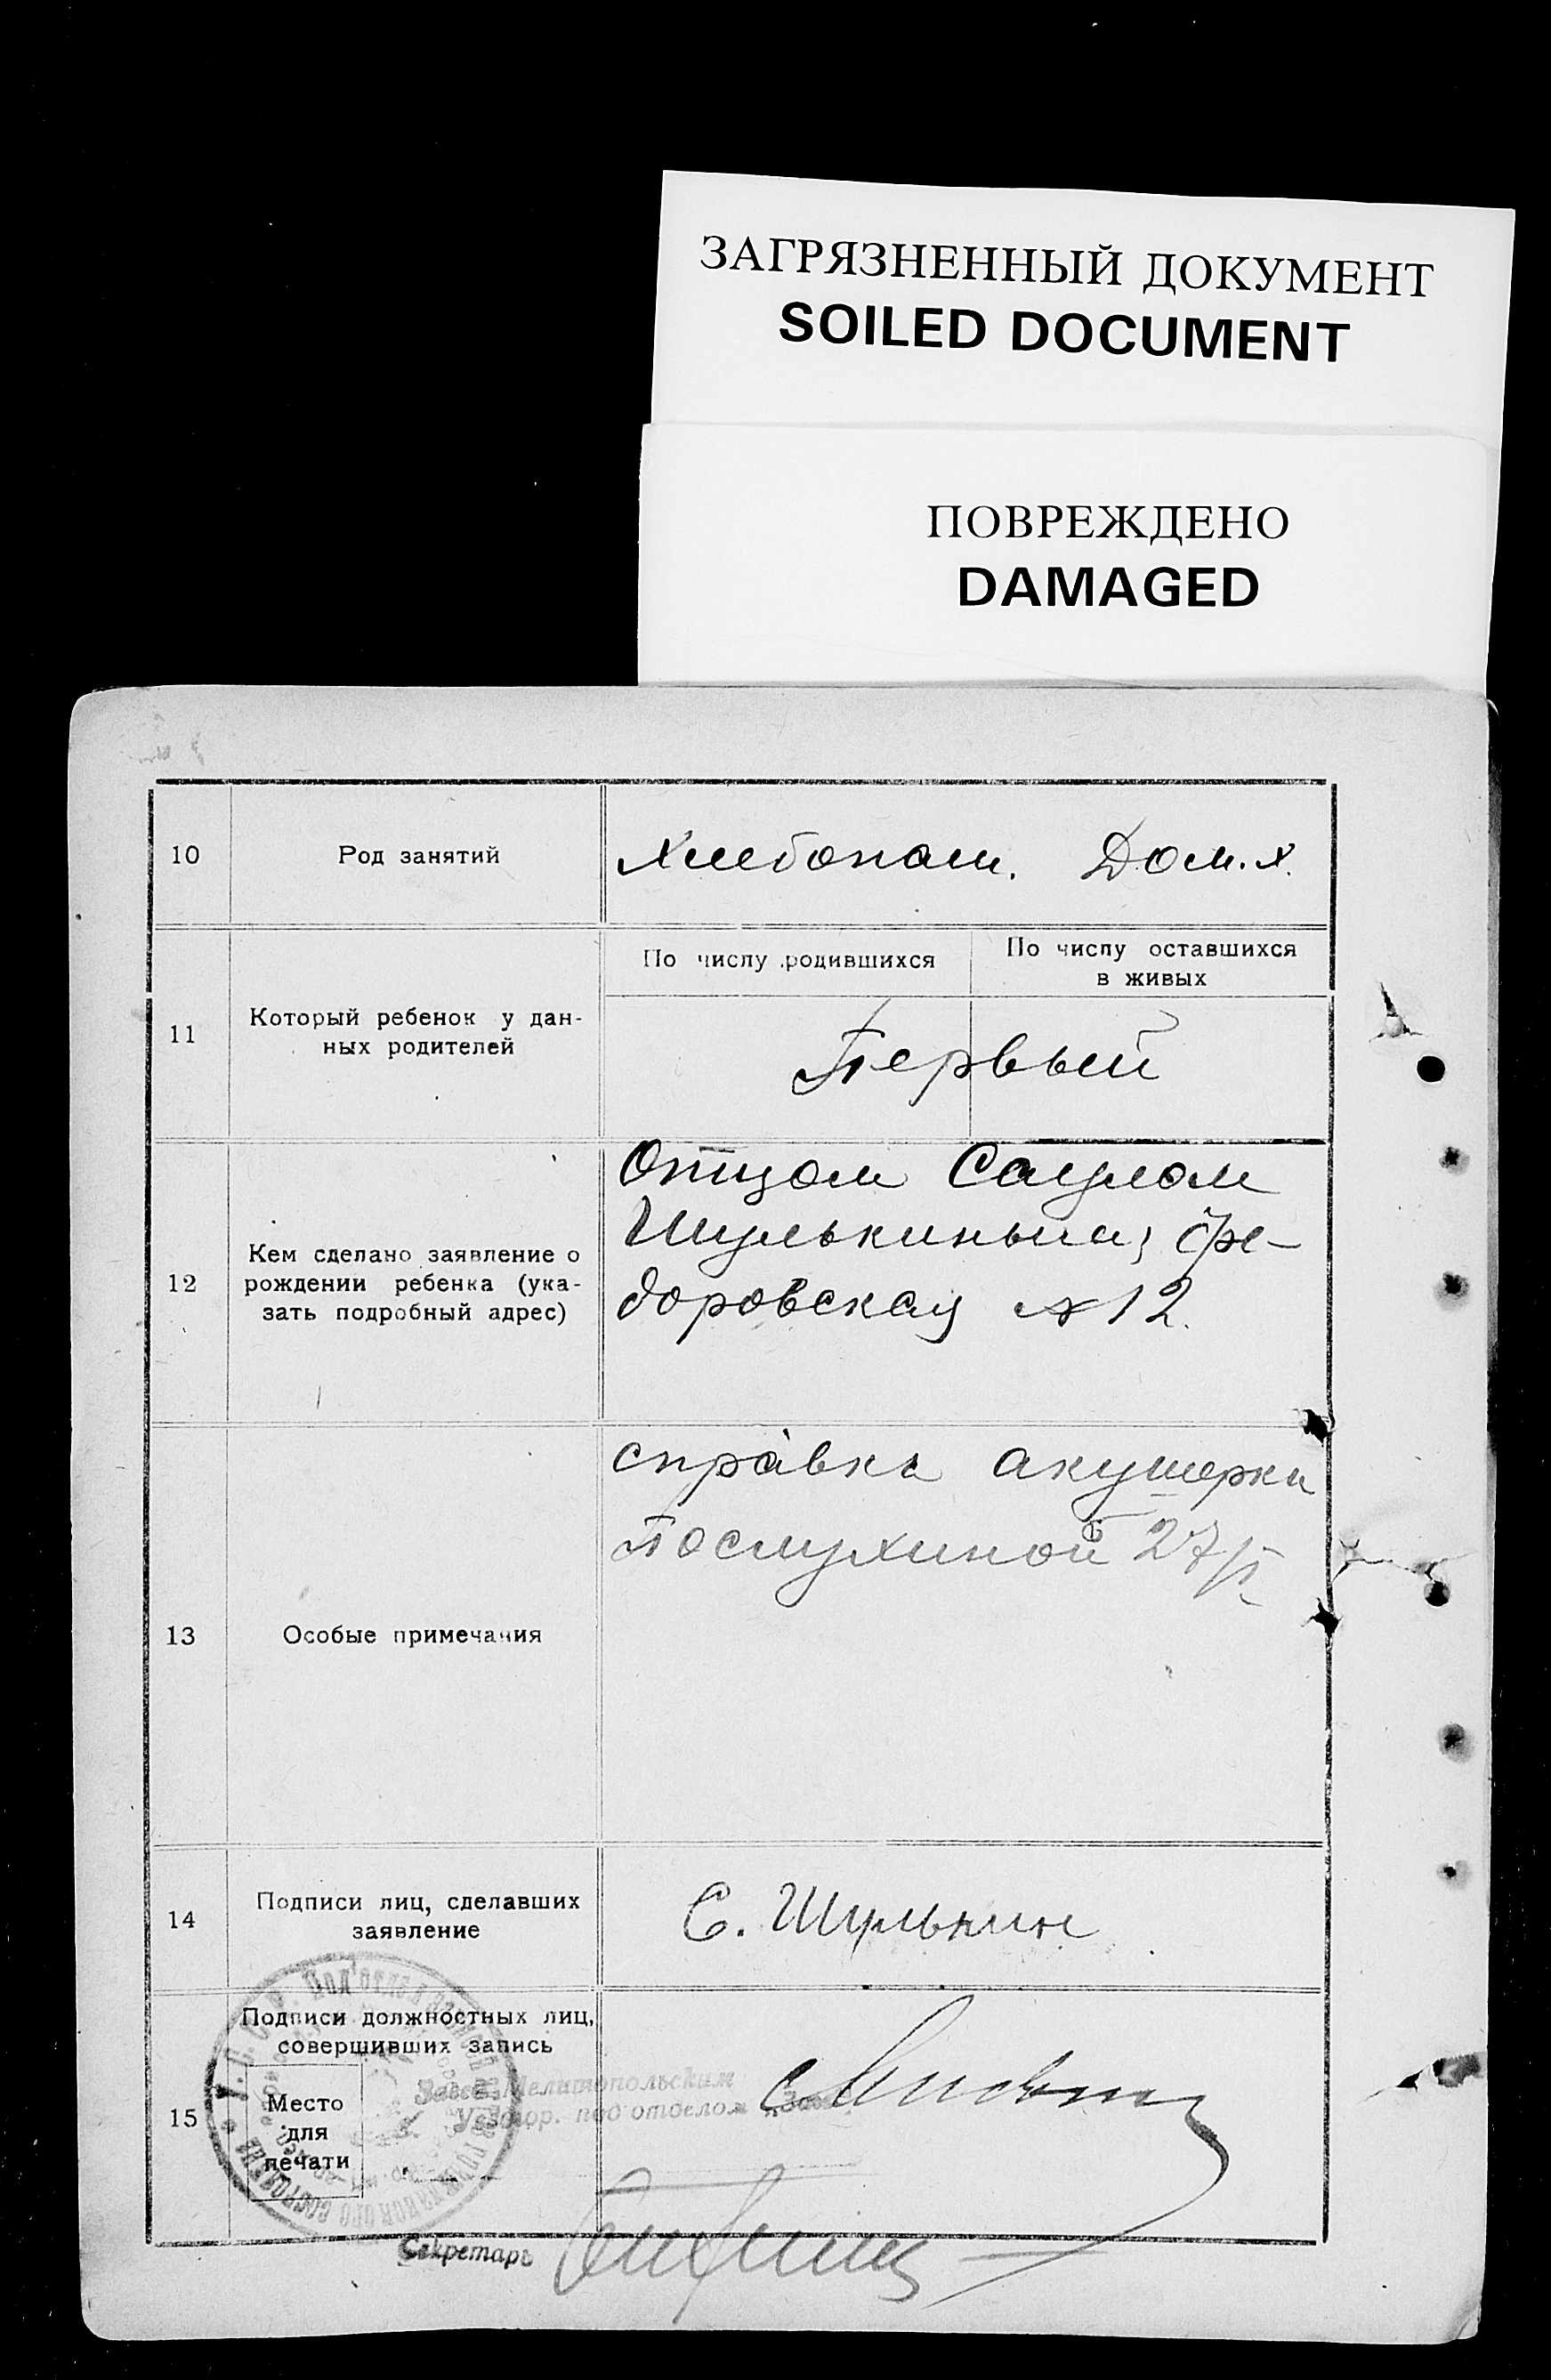 ЗАГРЯЗНЕННЫЙ ДОКУМЕНТ
SOILED DOCUMENT
ПОВРЕЖДЕНО
DAMAGED
10
Род занятий
Хлебопаш. Дом. х.
11
Который ребенок у дан-
ных родителей
По числу родившихся
По числу оставшихся
в живых
Первый
12
Кем сделано заявление о
рождении ребенка (ука-
зать подробный адрес)
Отцом Саулом
Шулькиным, Фе-
доровская № 12.
13
Особые примечания
справка акушерки
Послухиной 27/
14
Подписи лиц, сделавших
заявление
С. Шулькин
15
Подписи должностных лиц,
совершивших запись
Место
для
печати
Завед. Мелитопольским
под отделом
Секретарь